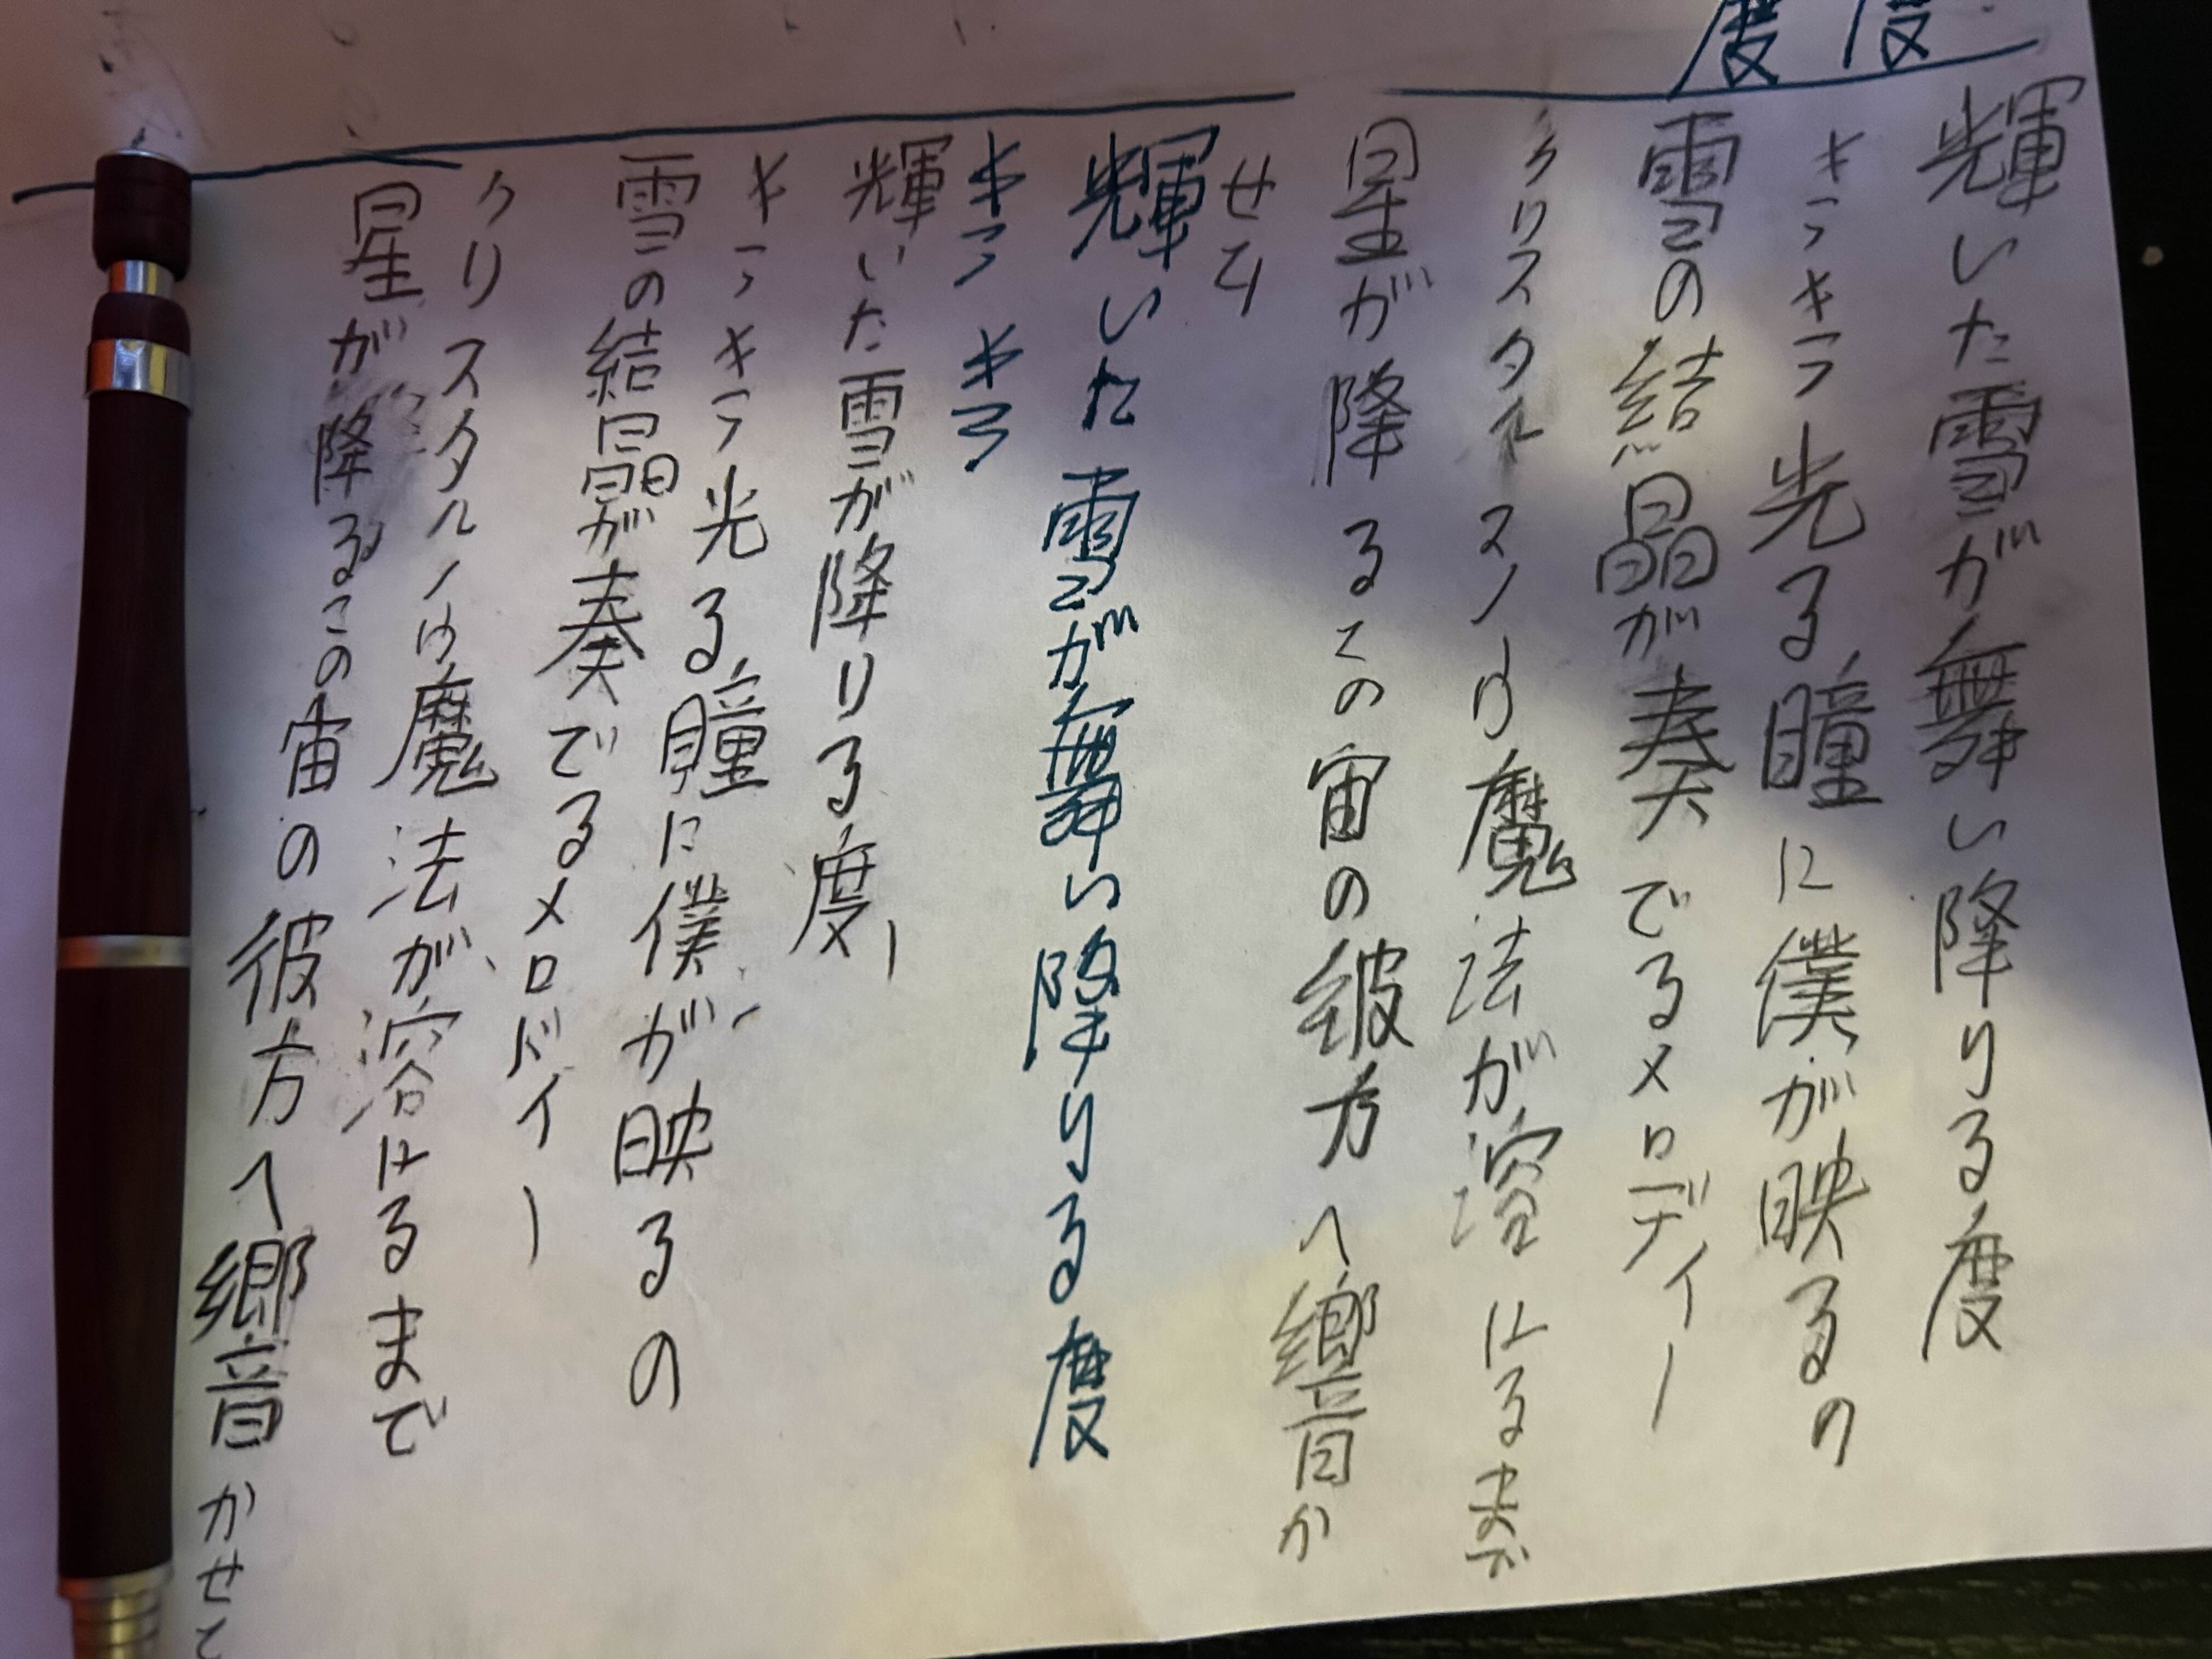 度度
輝いた雪が舞い降りる度
キラキラ光る瞳に僕が映るの
雪の結晶が奏でるメロディー
クリスタルスノウ魔法が溶けるまで
星が降るこの宙の彼方へ響か
せて
輝いた雪が舞い降りる度
キラキラ
輝いた雪が降りる度
キラキラ光る瞳に僕が映るの
雪の結晶が奏でるメロディー
クリスタルノウ魔法が溶けるまで
星が降るこの宙の彼方へ響かせて